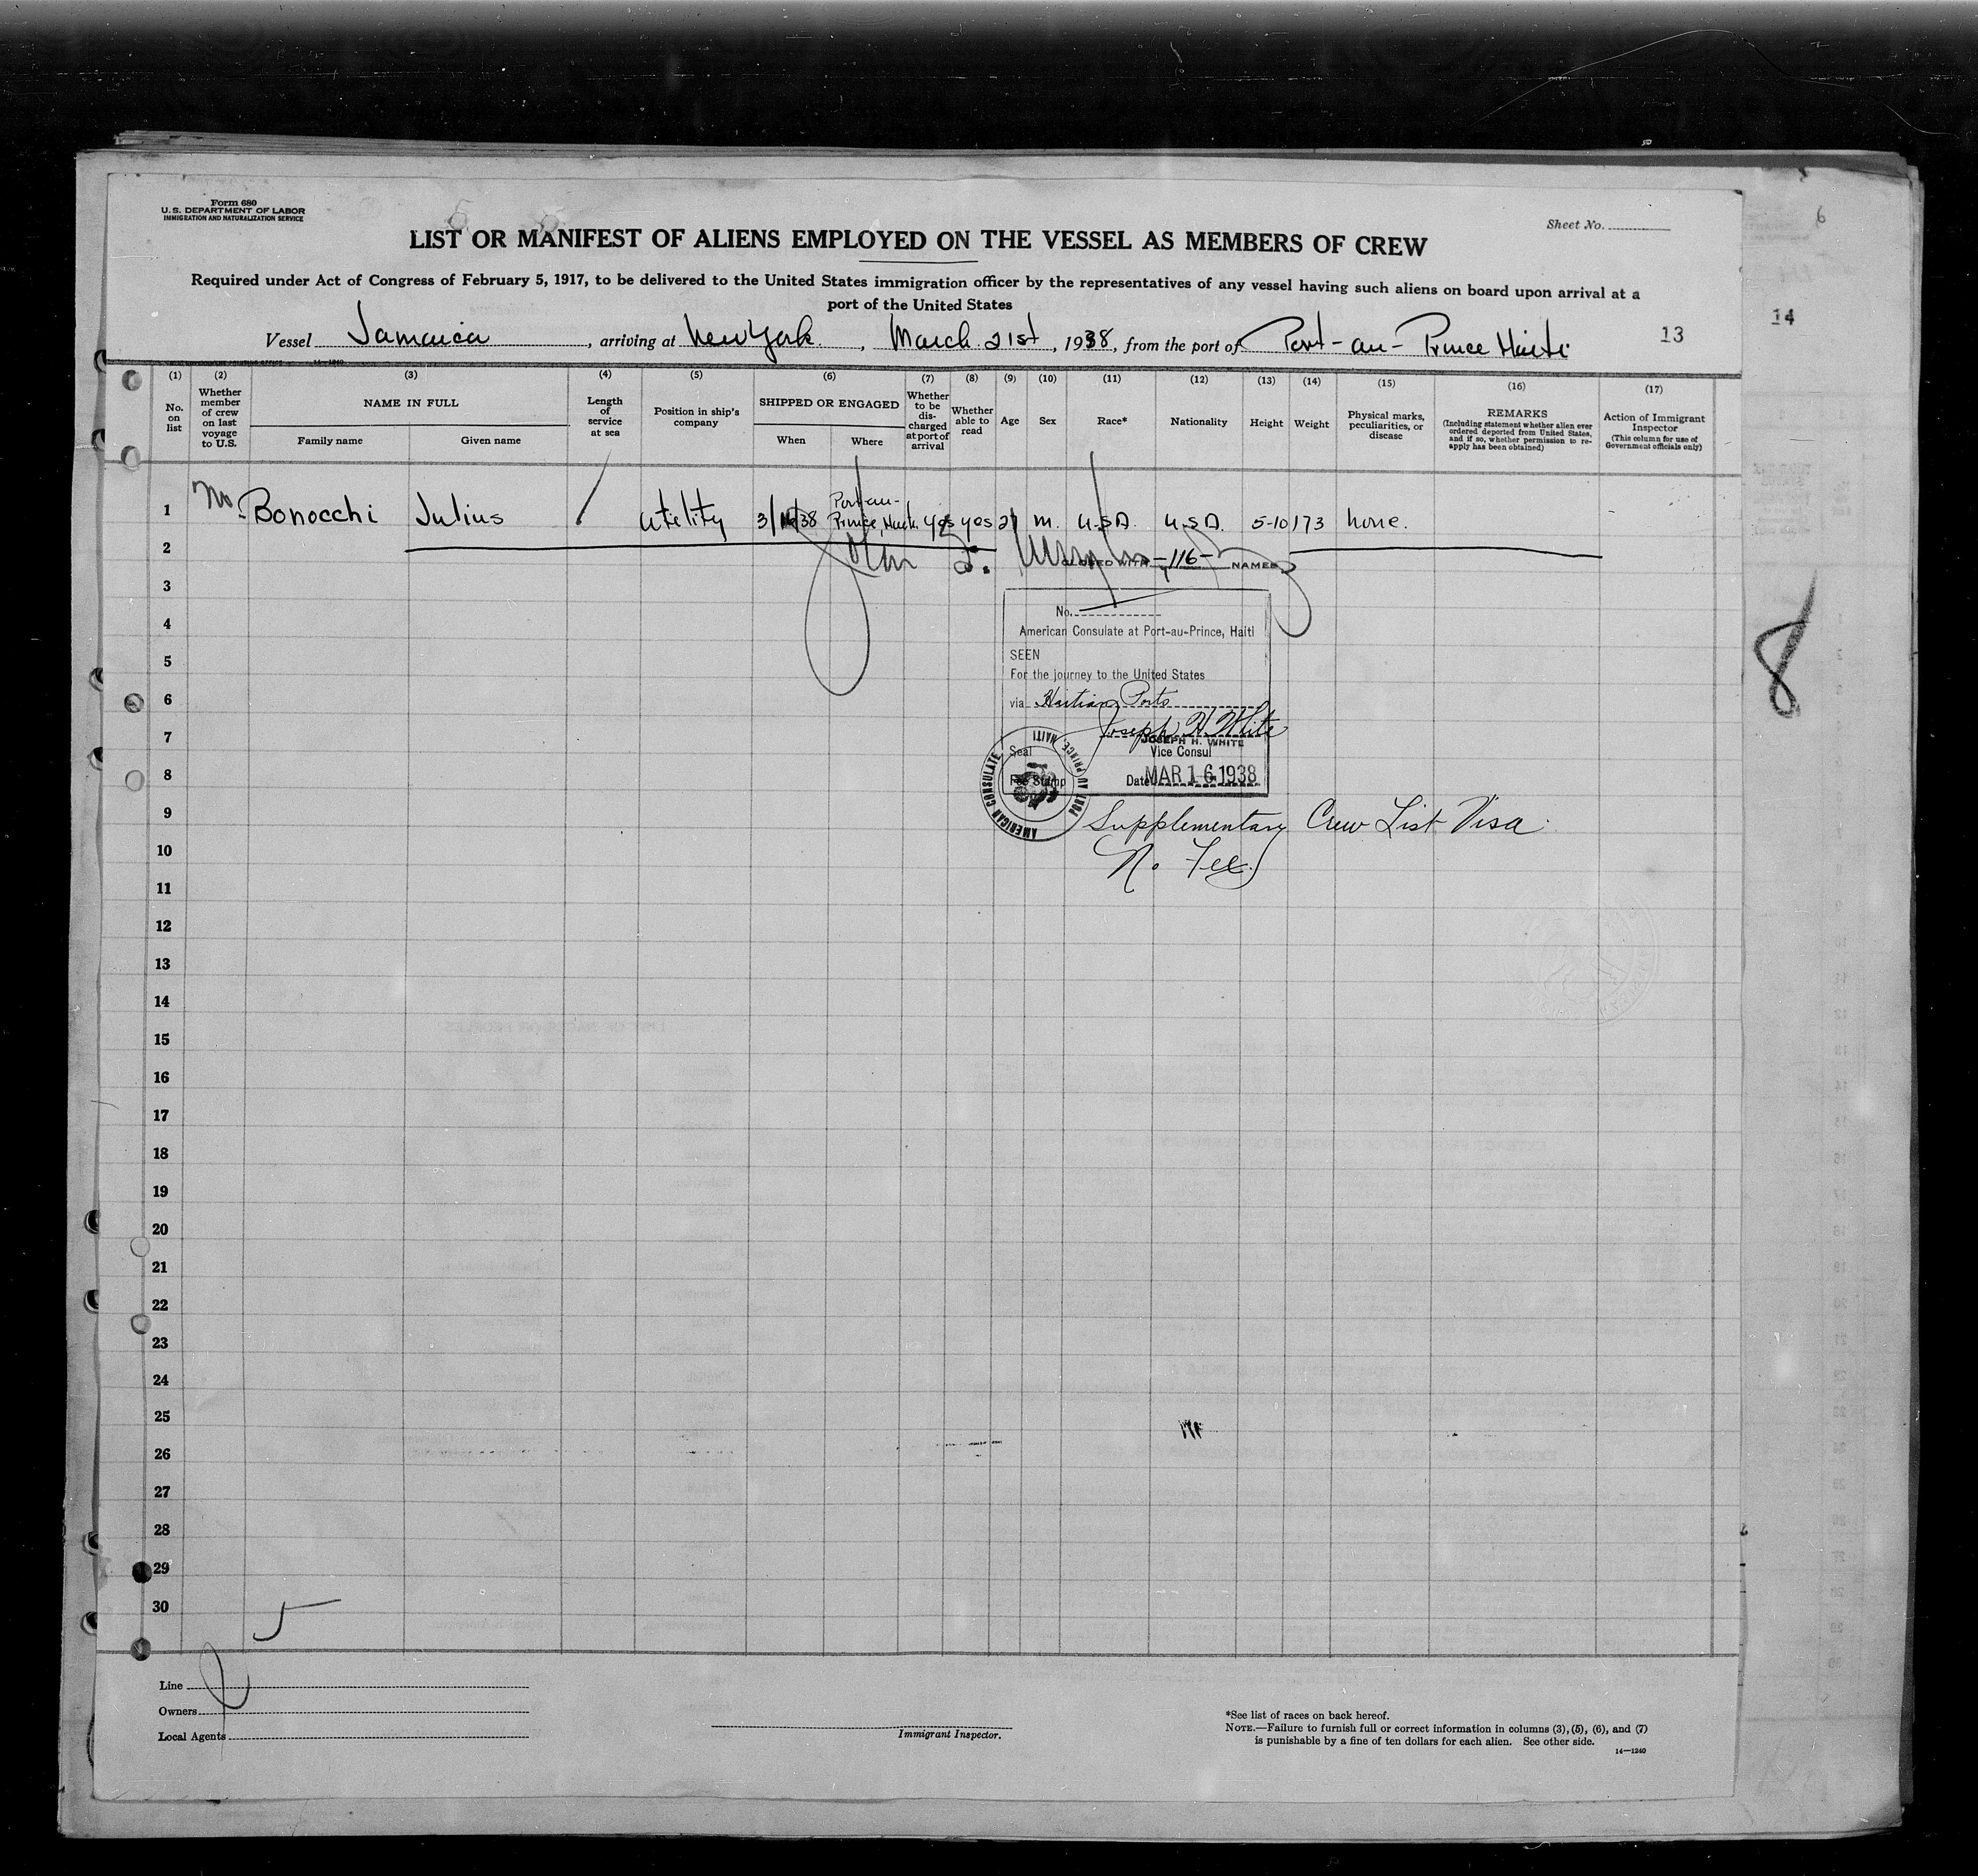 Form 680
U.S. DEPARTMENT OF LABOR
IMMIGRATION AND NATURALIZATION SERVICE
Sheet No.
6
LIST OR MANIFEST OF ALIENS EMPLOYED ON THE VESSEL AS MEMBERS OF CREW
Required under Act of Congress of February 5, 1917, to be delivered to the United States immigration officer by the representatives of any vessel having such aliens on board upon arrival at a
port of the United States
Vessel Jamaica, arriving at New York, March 21st, 1938, from the port of Port-au-Prince Haiti
13
14
14—1240
(1) No. on list
(2) Whether member of crew on last voyage to U.S.
(3) NAME IN FULL
Family name
Given name
(4) Length of service at sea
(5) Position in ship's company
(6) SHIPPED OR ENGAGED
When
Where
(7) Whether to be discharged at port of arrival
(8) Whether able to read
(9) Age
(10) Sex
(11) Race*
(12) Nationality
(13) Height
(14) Weight
(15) Physical marks, peculiarities, or disease
(16) REMARKS
(Including statement whether alien ever ordered deported from United States, and if so, whether permission to reapply has been obtained)
(17) Action of Immigrant Inspector
(This column for use of Government officials only)
1 No. Bonocchi Julius Utility 3/16/38 Port-au-Prince, yes yes 27 m. U.S.A. U.S.A. 5-10 173 none.
2
CLOSED WITH -116- NAMES
3
No.
4
American Consulate at Port-au-Prince, Haiti
5
SEEN
For the journey to the United States
6
via Haitian Ports
Joseph H. White
7
JOSEPH H. WHITE
Seal Vice Consul
8
Fee Stamp Date MAR 16 1938
AMERICAN CONSULATE PORT AU PRINCE, HAITI
8
9
Supplementary Crew List Visa.
10
No Fee
11
12
13
14
15
16
17
18
19
20
21
22
23
24
25
26
27
28
29
30
5
Line
Owners
Local Agents
Immigrant Inspector.
*See list of races on back hereof.
NOTE.—Failure to furnish full or correct information in columns (3), (5), (6), and (7)
is punishable by a fine of ten dollars for each alien. See other side.
14—1240